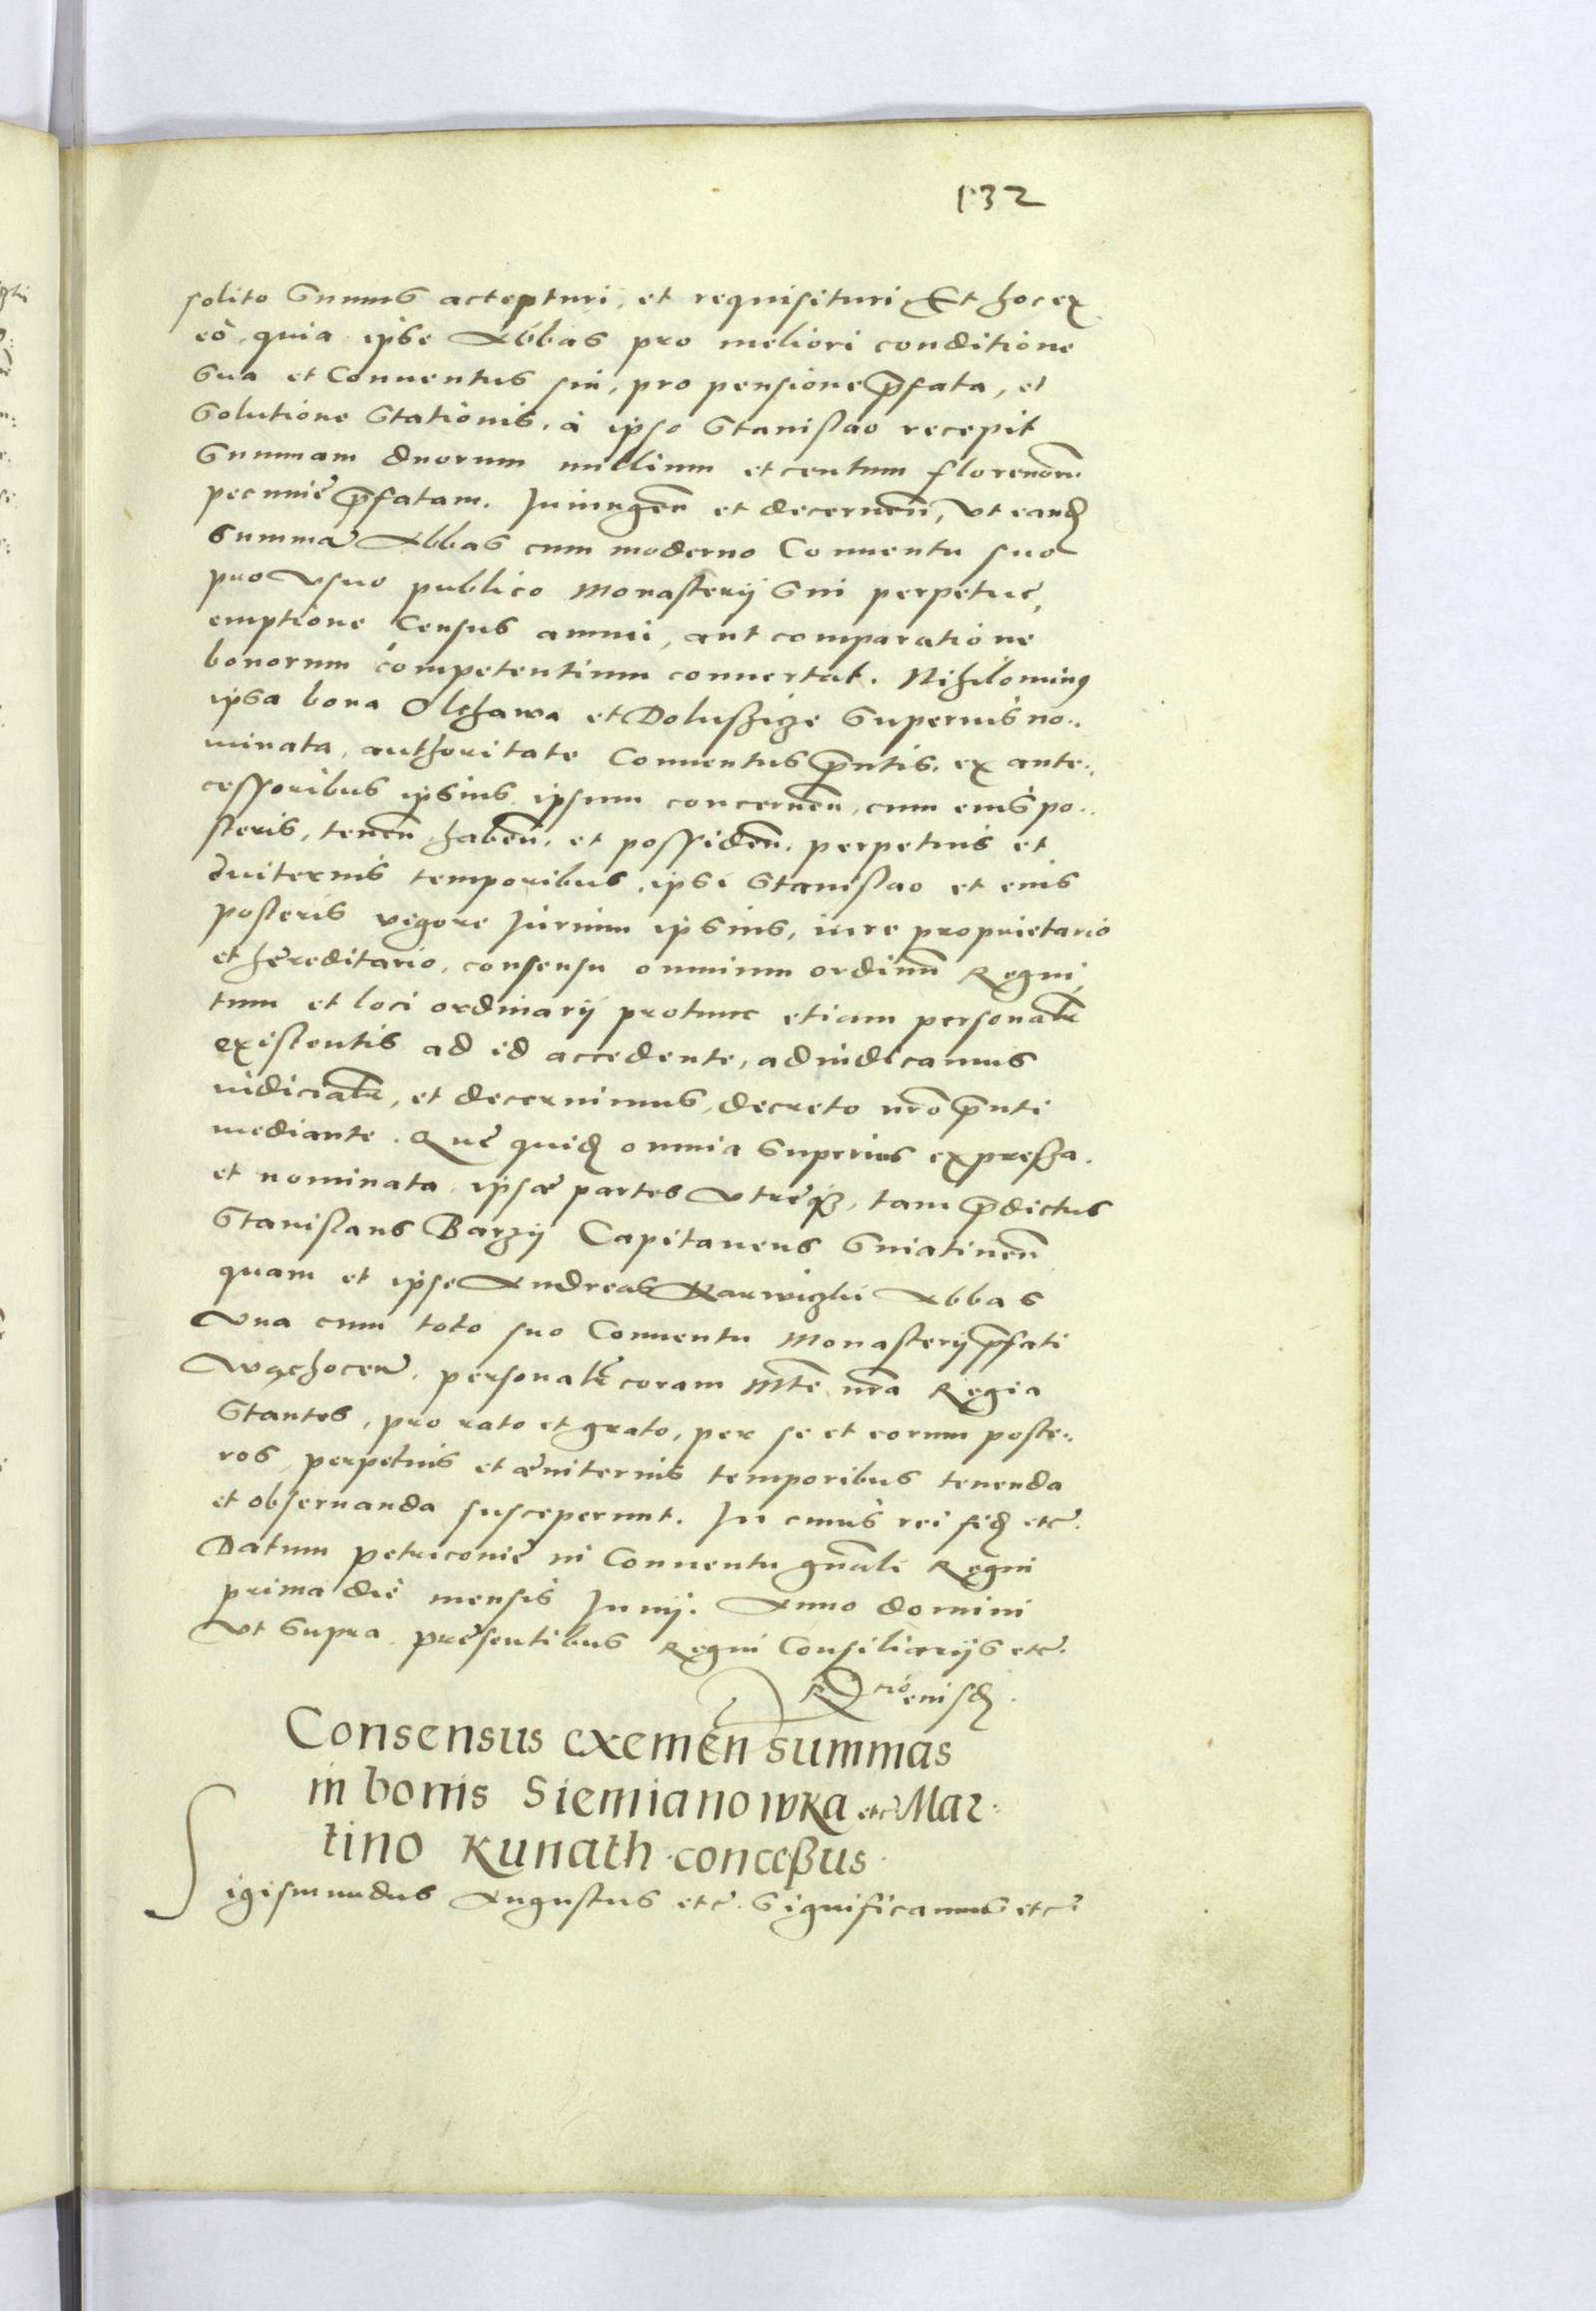 132
solito sumus accepturi, et requisituri Et hoc ex
eo, quia ipse Abbas pro meliori conditione
sua et Conuentus sui, pro pensione p̄fata, et
solutione stationis, à ipso Stanislao recepit
summam duorum millium et centum florenorū.
pecunie p̄fatam. Iniungeñ et decerneñ, vt eandē
summā Abbas cum moderno Conuentu suo
pro vsuo publico Monasterij sui perpetue,
emptione Census annui, aut comparatione
bonorum competentium conuertat. Nihilominꝰ
ipsa bona Olchawa et Doluszize superius no..
minata, authoritate Conuentus p̄ntis, ex ante..
cessoribus ipsius ipsum concerneñ, cum eius po..
steris, teneñ habeñ. et possideñ. perpetuis et
ęuiternis temporibus, ipsi Stanislao et eius
posteris vigore Iurium ipsius, iure proprietario
et hereditario, consensu omnium ordinū Regni,
tum et loci ordinarij protunc etiam personalr̄
existentis ad id accedente, adiudicamus
iudicialr̄, et decernimus, decreto nr̄o p̄nti
mediante. Que quidē omnia superius expressa.
et nominata, ipsæ partes vtreqꝫ, tam p̄dictus
Stanislaus Barzij Capitaneus Sniatineñ
quam et ipse Andreas Karwizki Abbas
Vna cum toto suo Conuentu Monasterij p̄fati
Wąchoceñ. personalr̄ coram Mte nr̄a Regia
stantes, pro rato et grato, per se et eorum poste..
ros perpetuis et æuiternis temporibus tenenda
et obseruanda susceperunt. In cuius rei fidē etc̄.
Datum Petricouie in Conuentu gn̄ali Regni
prima die mensis Iunij. Anno domini
Vt supra. presentibus Regni Consiliarijs etc̄.
R ͭⁱᵒ eiusdē.
Consensus exemeñ summas
in bonis Siemianowka etc̄ Mar..
tino Kunath conceßus
Sigismundus Augustus etc̄. Significamus etc̄